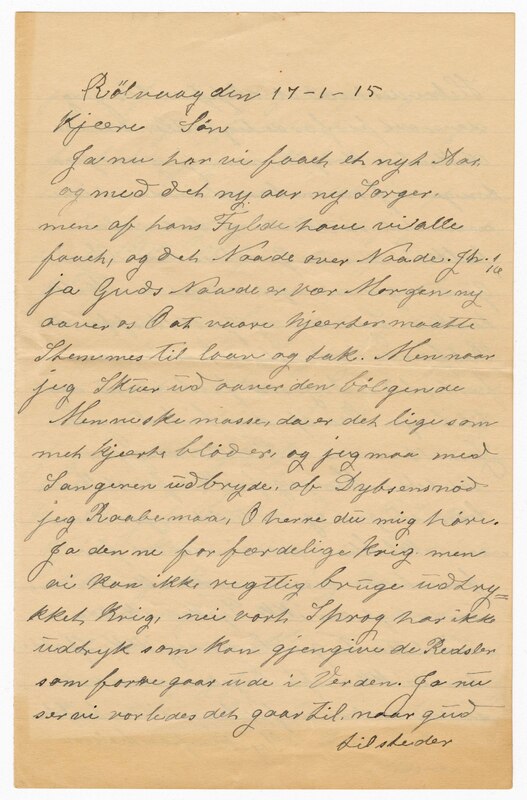 Rölvaag den 17-1-15
Kjære Søn
Ja nu har vi faaet et nyt Aar,
og med det ny aar ny Sorger.
men af hans Fylde have vi alle
faaet, og det Naade over Naade. Jh. 1/16
ja Guds Naade er vær Morgen ny
aaver os O at vaare hjærter maatte
Stemmes til laav og tak. Men naar
jeg Skuer ud aaver den bölgende
Menneske masse, da er det lige som
mit hjærte blöder, og jeg maa med
Sangeren udbryde, af Dybsensnöd
jeg Raabe maa, O herre du mig höre.
Ja den ne for færdelige Krig men
vi kan ikke regttig bruge udtry=
kket Krig, nei vort Sprog har ikke
udtryk som kan gjengive de Redsler
som forre gaar ude i Verden. Ja nu
ser vi vorledes det gaar til, naar gud
tilsteder